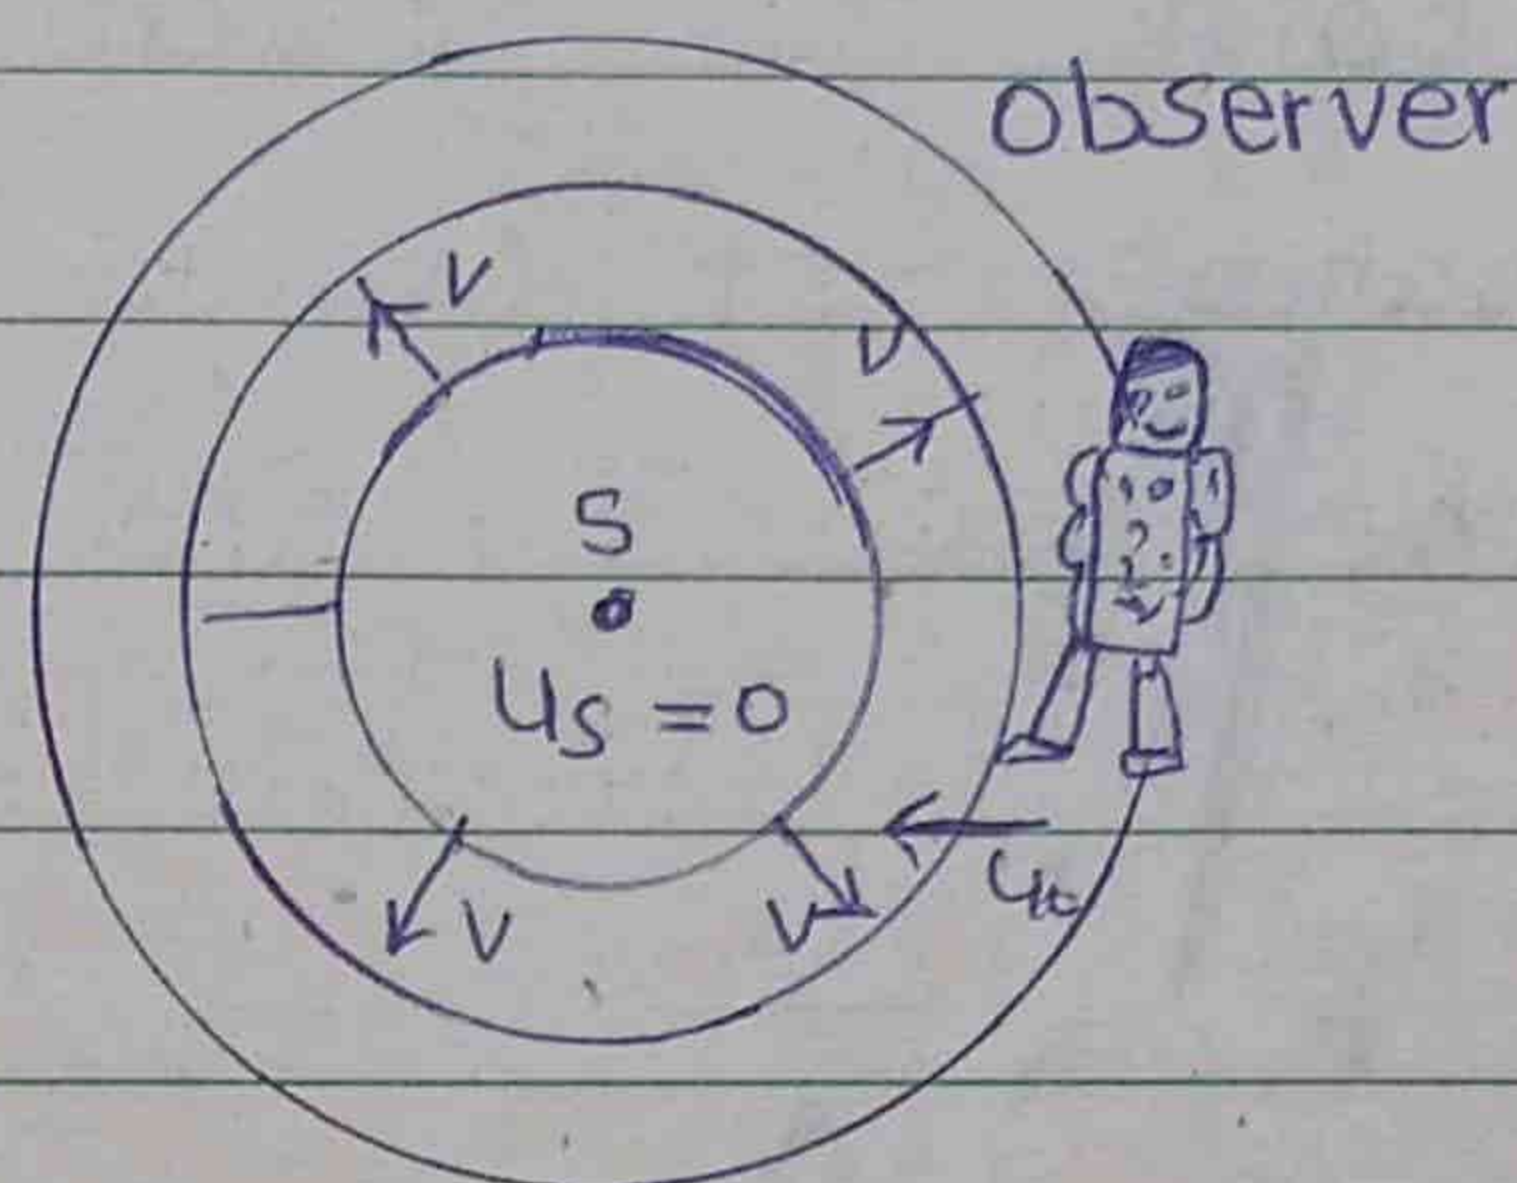 observer
V
V
S
us = 0
V
V